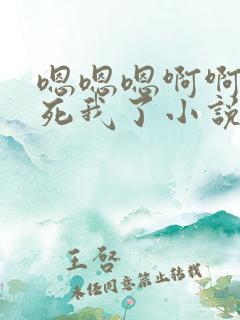 嗯嗯嗯啊啊
死我了小说
王啓
未经同意禁止转载